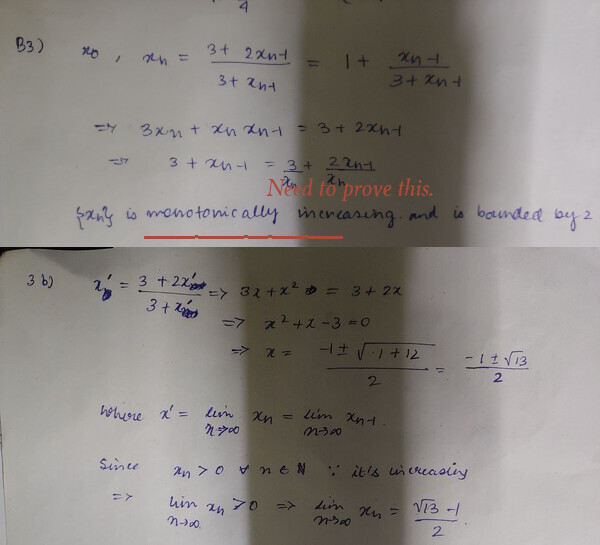 4
B3) x₀, xₙ = (3 + 2xₙ₋₁)/(3 + xₙ₋₁) = 1 + xₙ₋₁/(3 + xₙ₋₁)
=> 3xₙ + xₙ xₙ₋₁ = 3 + 2xₙ₋₁
=> 3 + xₙ₋₁ = 3/xₙ + 2xₙ₋₁/xₙ
Need to prove this.
{xₙ} is monotonically increasing and is bounded by 2
3 b) x' = (3 + 2x')/(3 + x') => 3x + x² = 3 + 2x
=> x² + x - 3 = 0
=> x = (-1 ± √(1 + 12))/2 = (-1 ± √13)/2
where x' = lim n→∞ xₙ = lim n→∞ xₙ₋₁
Since xₙ > 0 ∀ n ∈ N ∵ it's increasing
=> lim n→∞ xₙ > 0 => lim n→∞ xₙ = (√13 - 1)/2.